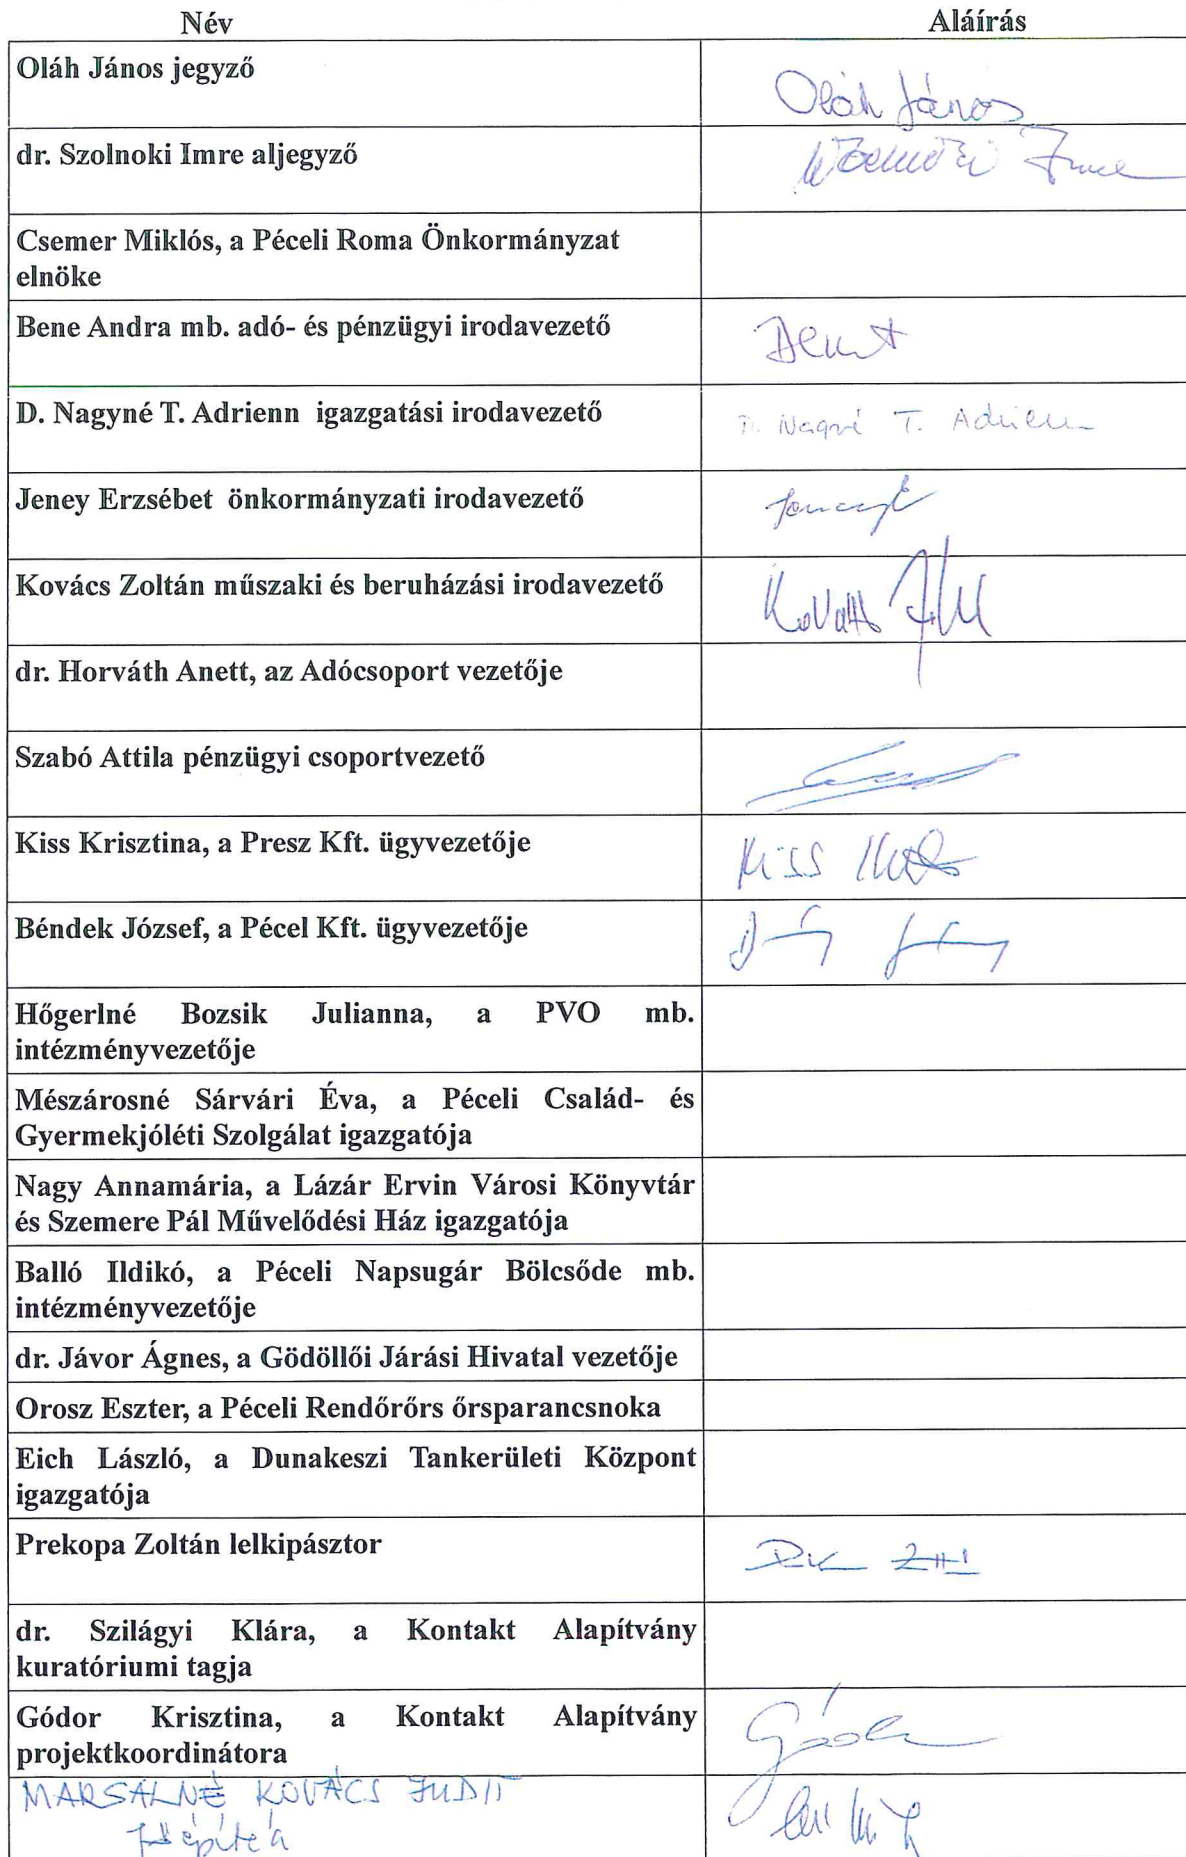 Név Aláírás
Oláh János jegyző Oláh János
dr. Szolnoki Imre aljegyző Szolnoki Imre
Csemer Miklós, a Péceli Roma Önkormányzat
elnöke
Bene Andra mb. adó- és pénzügyi irodavezető
D. Nagyné T. Adrienn igazgatási irodavezető D. Nagyné T. Adrienn
Jeney Erzsébet önkormányzati irodavezető
Kovács Zoltán műszaki és beruházási irodavezető Kovács
dr. Horváth Anett, az Adócsoport vezetője
Szabó Attila pénzügyi csoportvezető
Kiss Krisztina, a Presz Kft. ügyvezetője Kiss
Béndek József, a Pécel Kft. ügyvezetője
Hőgerlné Bozsik Julianna, a PVO mb.
intézményvezetője
Mészárosné Sárvári Éva, a Péceli Család- és
Gyermekjóléti Szolgálat igazgatója
Nagy Annamária, a Lázár Ervin Városi Könyvtár
és Szemere Pál Művelődési Ház igazgatója
Balló Ildikó, a Péceli Napsugár Bölcsőde mb.
intézményvezetője
dr. Jávor Ágnes, a Gödöllői Járási Hivatal vezetője
Orosz Eszter, a Péceli Rendőrőrs őrsparancsnoka
Eich László, a Dunakeszi Tankerületi Központ
igazgatója
Prekopa Zoltán lelkipásztor
dr. Szilágyi Klára, a Kontakt Alapítvány
kuratóriumi tagja
Gódor Krisztina, a Kontakt Alapítvány
projektkoordinátora
MARSALNÉ KOVÁCS JUDIT
főépítész